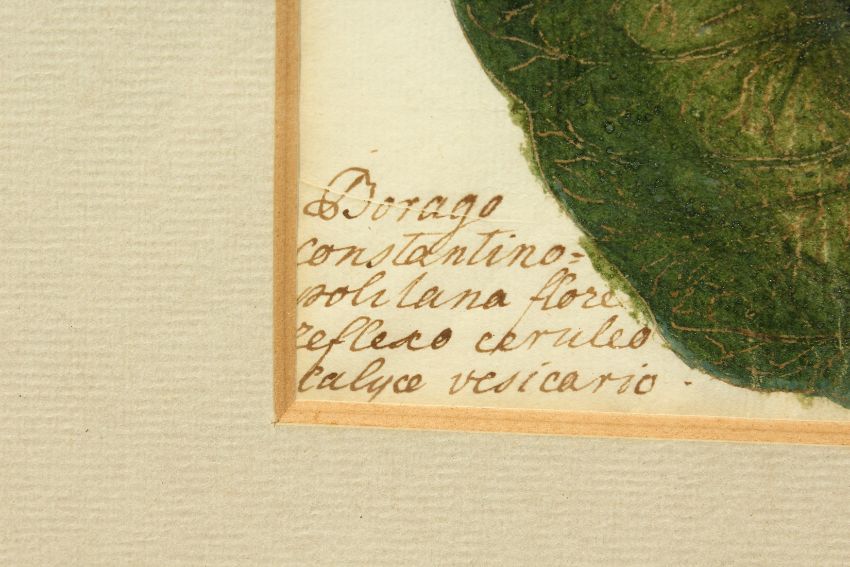 Borago
constantino=
politana flore
reflexo ceruleo
calyce vesicario .